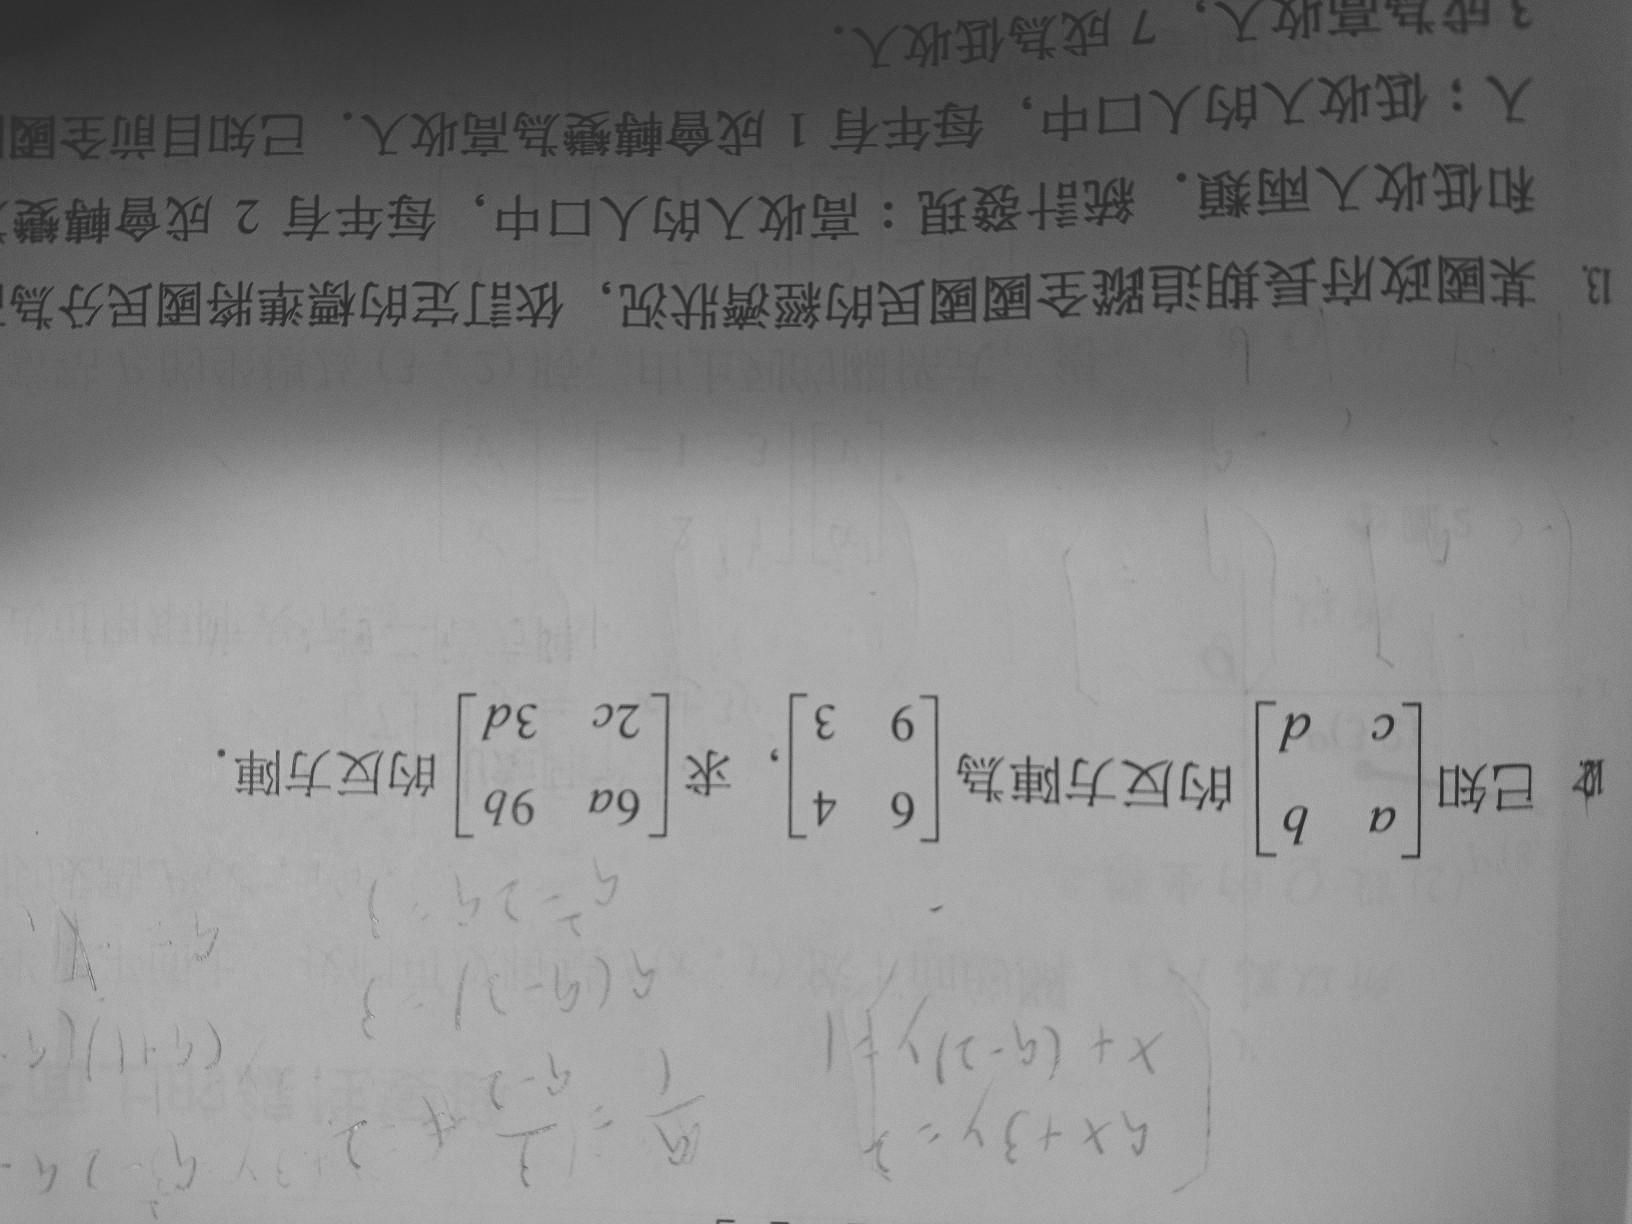 ax+3y=2
x+(a-2)y=1
a/1 = 3/(a-2) ≠ 2
a(a-2)=3
a²-2a=3
a²-2a-
(a+1)(a-
已知 [a b; c d] 的反方陣為 [6 4; 9 3]，求 [6a 9b; 2c 3d] 的反方陣．
13. 某國政府長期追蹤全國國民的經濟狀況，依訂定的標準將國民分為
和低收入兩類．統計發現：高收入的人口中，每年有 2 成會轉變
人；低收入的人口中，每年有 1 成會轉變為高收入．已知目前全國
3 成為高收入，7 成為低收入．